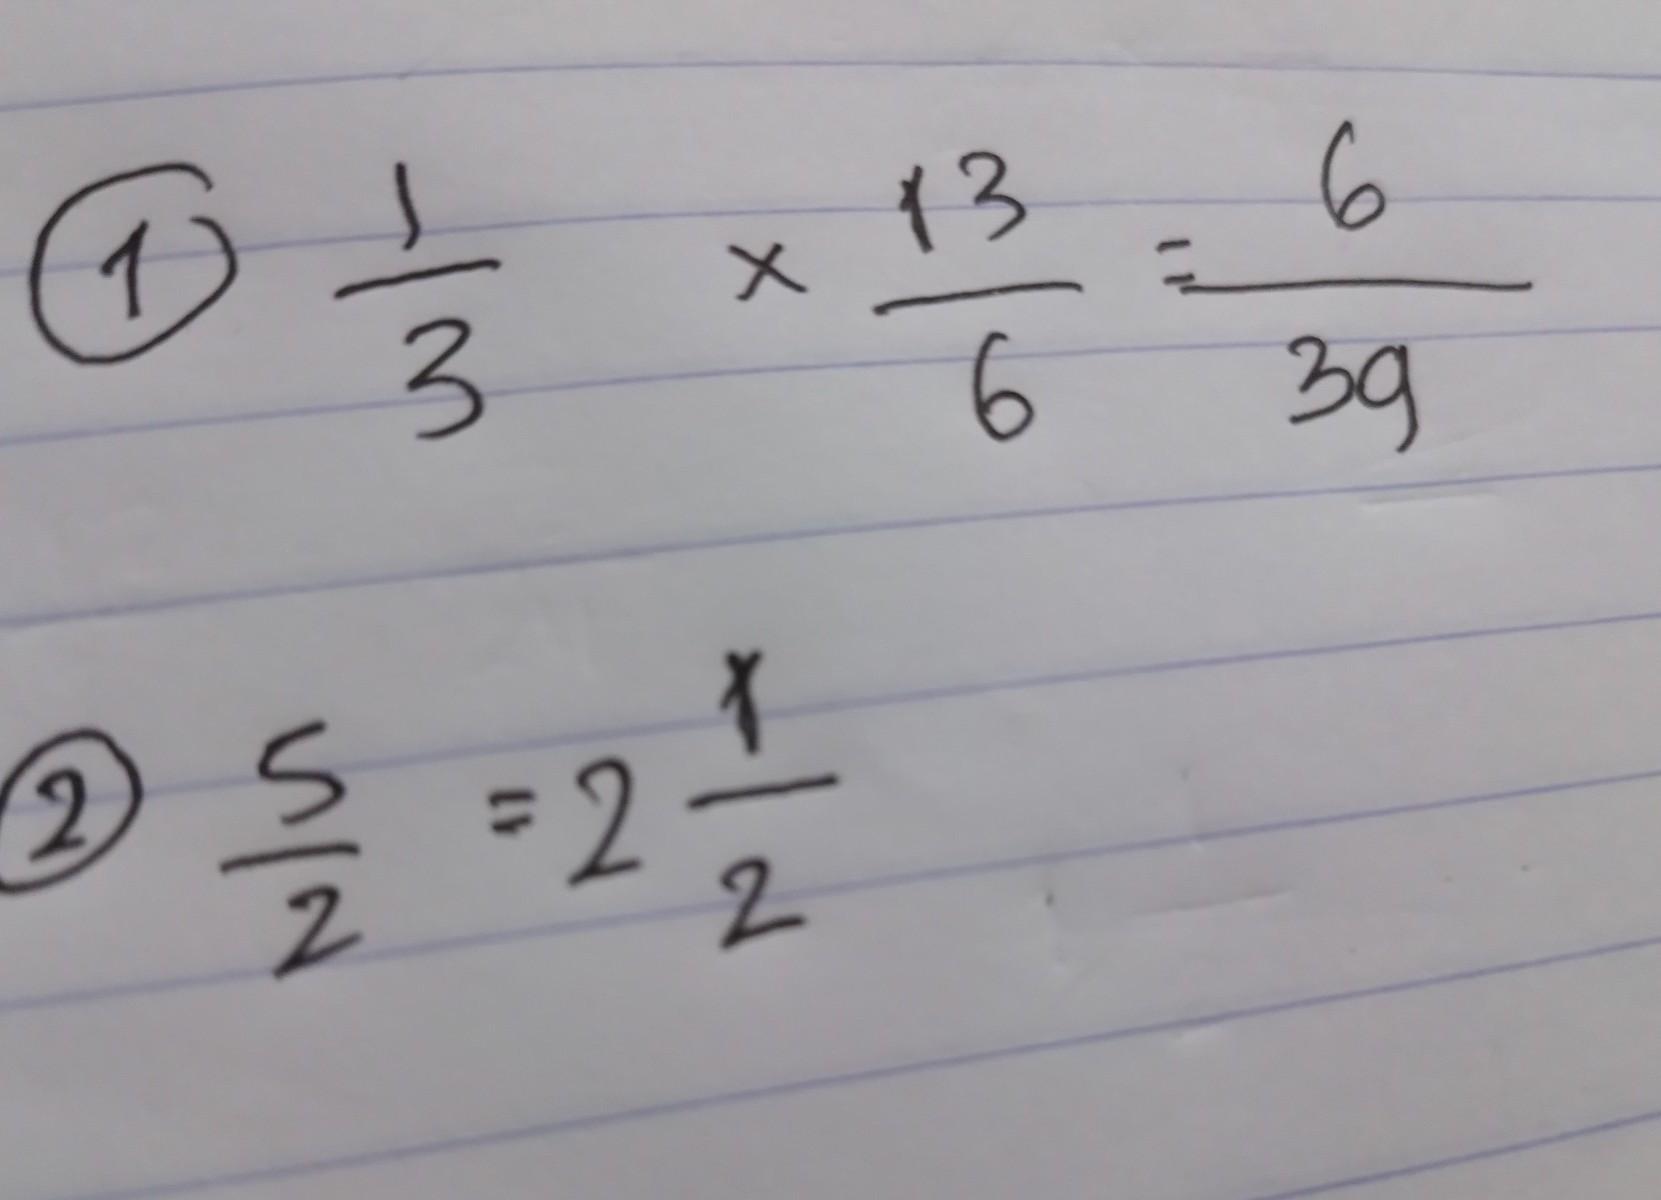 ① 1/3 × 13/6 = 6/39
② 5/2 = 2 1/2